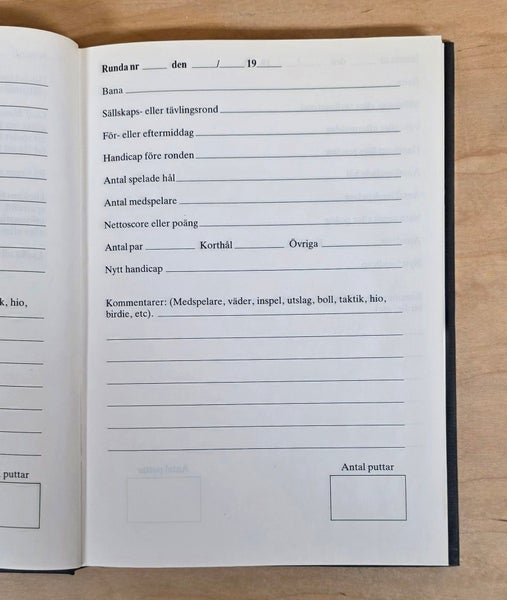 Runda nr _____ den _____/_____ 19_____
Bana
Sällskaps- eller tävlingsrond
För- eller eftermiddag
Handicap före ronden
Antal spelade hål
Antal medspelare
Nettoscore eller poäng
Antal par __________ Korthål __________ Övriga __________
Nytt handicap
Kommentarer: (Medspelare, väder, inspel, utslag, boll, taktik, hio,
birdie, etc).
Antal puttar
k, hio,
puttar